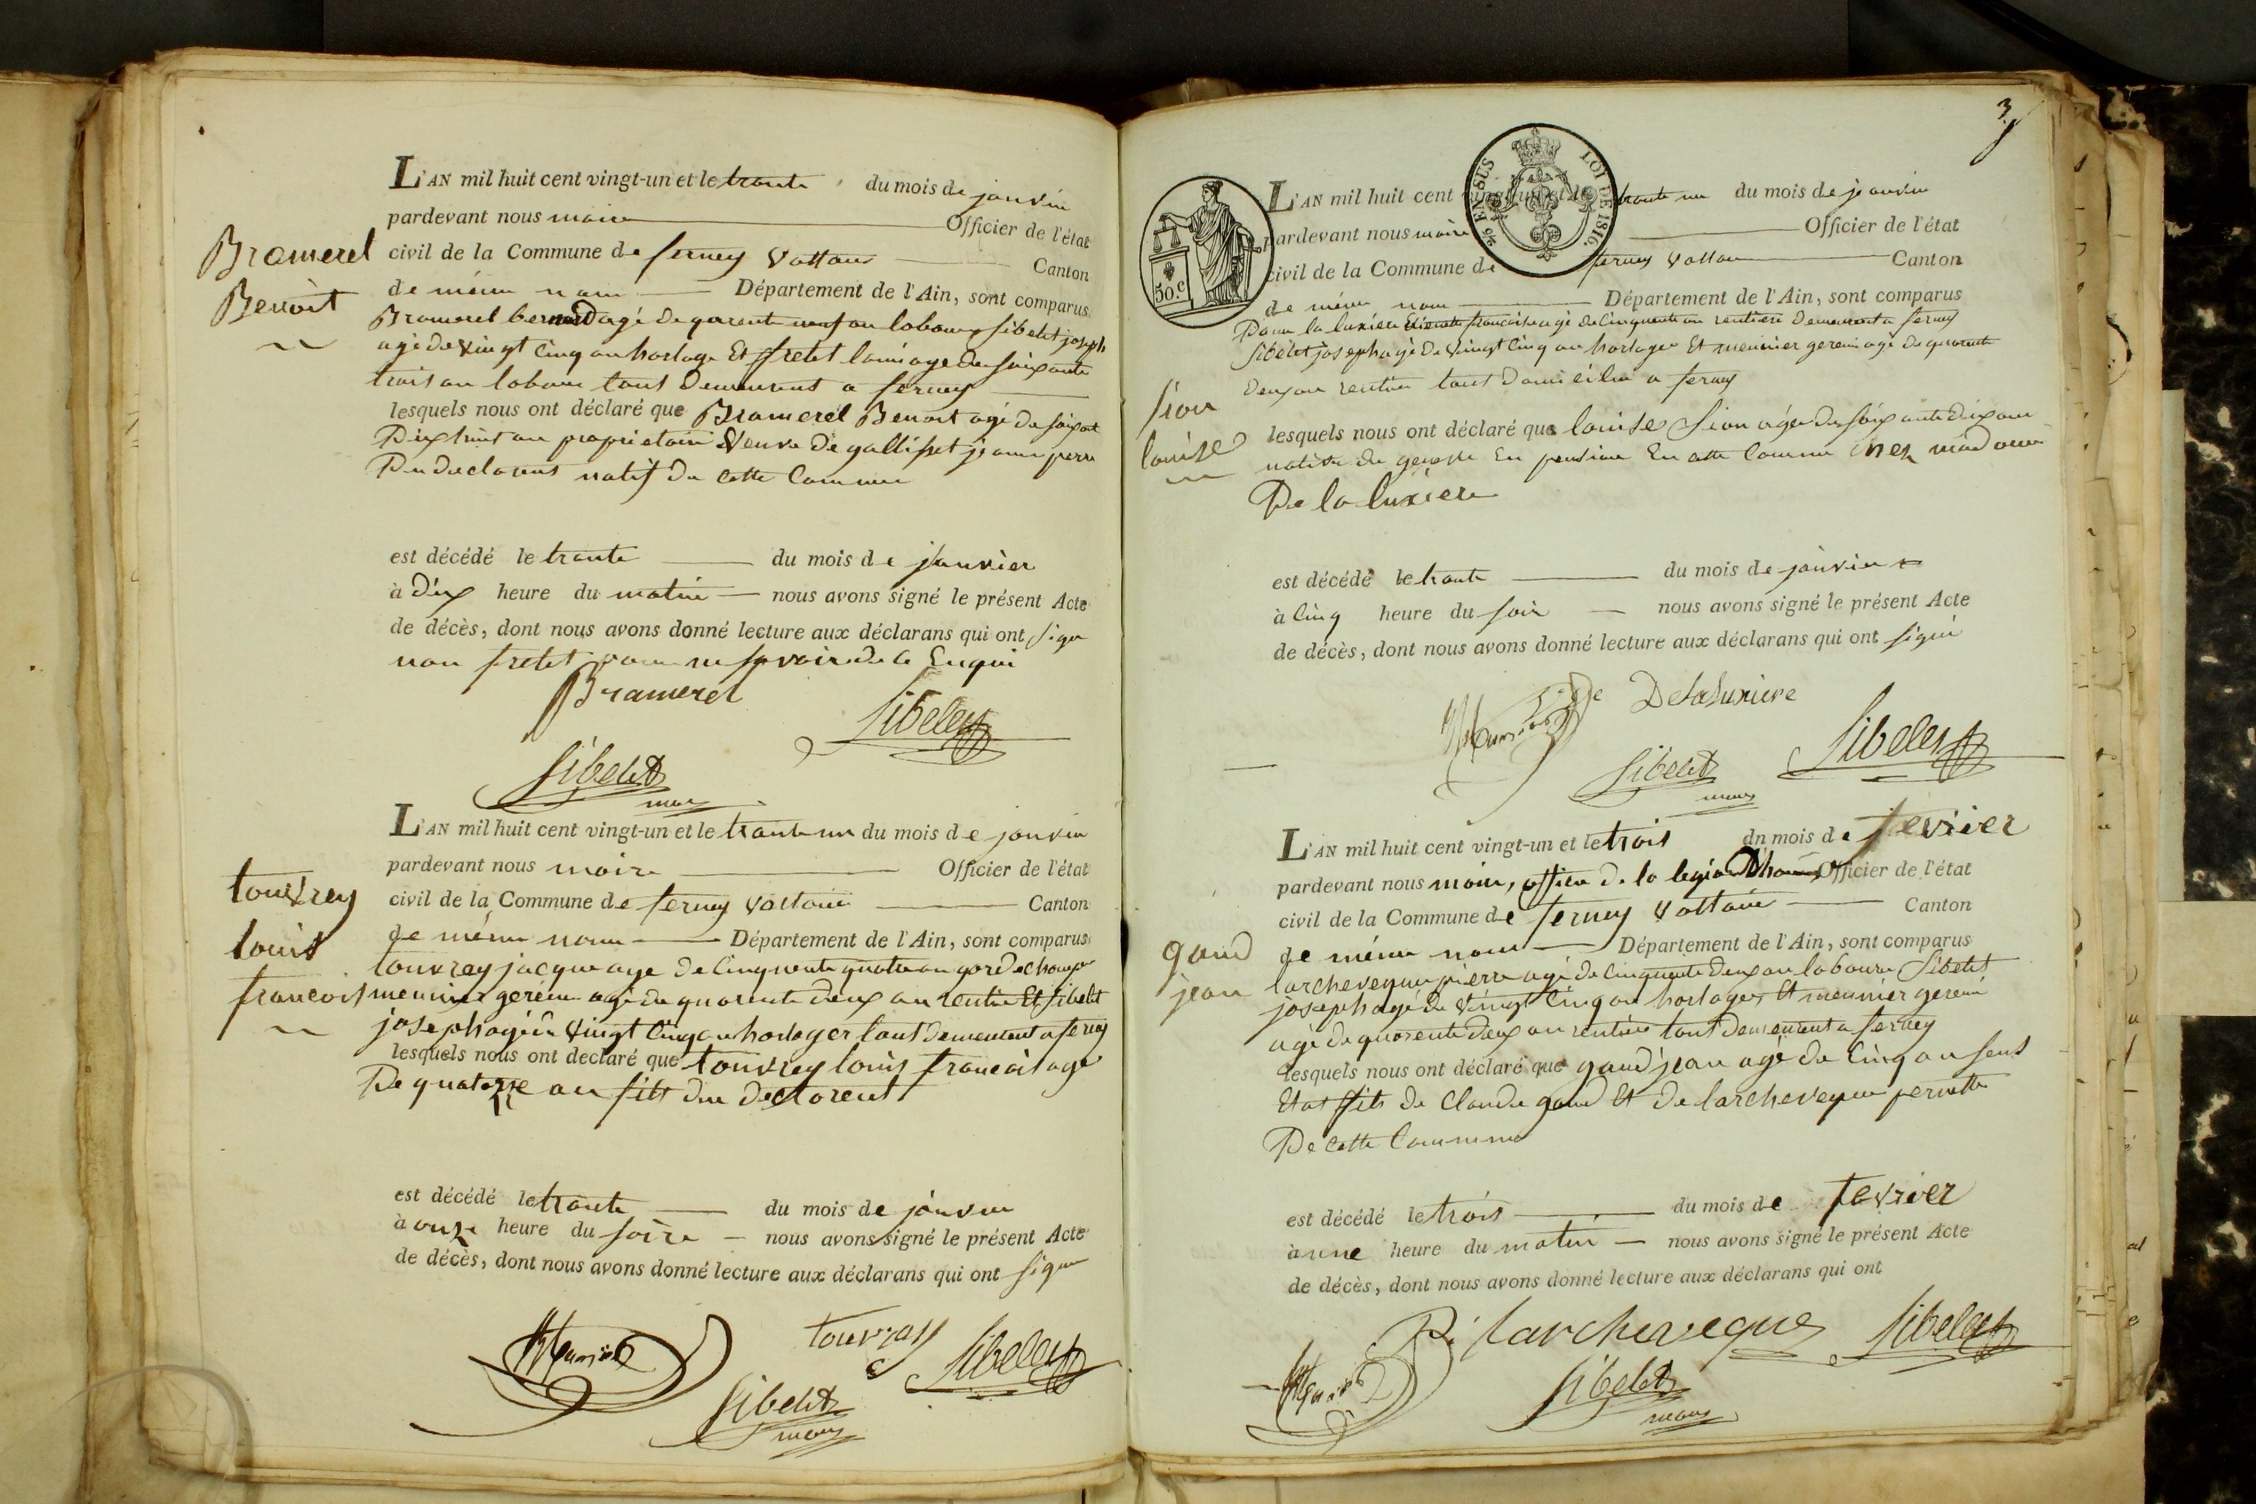 L'AN mil huit cent vingt-un et le trante du mois de janvier
pardevant nous maire Officier de l'état
civil de la Commune de ferney Voltaire Canton
de même nom Département de l'Ain, sont comparus
Bramerel
Benoit
Bramerel bernard agé de quarente neuf an laboure Sibelet joseph
agé de Vingt Cinq an horloge Et fretet louis age de soixante
trois an laboure tous demeurent a ferney
lesquels nous ont déclaré que Bramerel Benoit agé de soixante
Dix huit an proprietaire Veuve de gallisset jeanne pere
Du declarent natif de cette Commune
est décédé le trante du mois de janvier
à dix heure du matin nous avons signé le présent Acte
de décès, dont nous avons donné lecture aux déclarans qui ont signe
non fretet pour ne savoir de ce Enqui
Bramerel
Sibelet
Sibelet
maire
L'AN mil huit cent vingt-un et le trante un du mois de janvier
pardevant nous maire Officier de l'état
civil de la Commune de ferney Voltaire Canton
de même nom Département de l'Ain, sont comparus
touvrey
louis
francois
touvrey jacque age de Cinquente quatre an garde champe
meunier gereme agé de quarente deux an rentier Et Sibelet
joseph agé de Vingt Cinq an horloger tout demeurent a ferney
lesquels nous ont déclaré que touvrey louis francois age
De quatorze an fils du declarent
est décédé le trante du mois de janvier
à onze heure du soire nous avons signé le présent Acte
de décès, dont nous avons donné lecture aux déclarans qui ont signe
Meunier
touvray
Sibelet
Sibelet
maire
3
50.c
EN SUS
LOI DE 1816.
L'AN mil huit cent vingt-un et le trante un du mois de janvier
pardevant nous maire Officier de l'état
civil de la Commune de ferney Voltaire Canton
de même nom Département de l'Ain, sont comparus
Sion
louise
Dame la luxiere francoise agé de Cinquente an rentiere Demeurent a ferney
Sibelet joseph agé de Vingt Cinq an horloger Et meunier gereme agé de quarente
deux an rentier tout Domicilié a ferney
lesquels nous ont déclaré que louise Sion agée de soixante dix an
native de geneve En pension En cette Commune chez madame
De la luxiere
est décédé le trante du mois de janvier
à Cinq heure du soir nous avons signé le présent Acte
de décès, dont nous avons donné lecture aux déclarans qui ont signé
Meunier
DelaLuxiere
Sibelet
Sibelet
maire
L'AN mil huit cent vingt-un et le trois du mois de fevrier
pardevant nous maire, officier de la legion Dhoneur Officier de l'état
civil de la Commune de ferney Voltaire Canton
de même nom Département de l'Ain, sont comparus
gaud
jean
larcheveque pierre agé de Cinquente deux an laboure Sibelet
joseph agé de Vingt Cinq an horloger Et meunier gereme
agé de quarente deux an rentier tout demeurent a ferney
lesquels nous ont déclaré que gaud jean agé de Cinq an sens
Etat fils de Claude gaud Et de larcheveque pernette
De cette Commune
est décédé le trois du mois de fevrier
à une heure du matin nous avons signé le présent Acte
de décès, dont nous avons donné lecture aux déclarans qui ont
Pi larcheveque
Sibelet
Meunier
Sibelet
maire